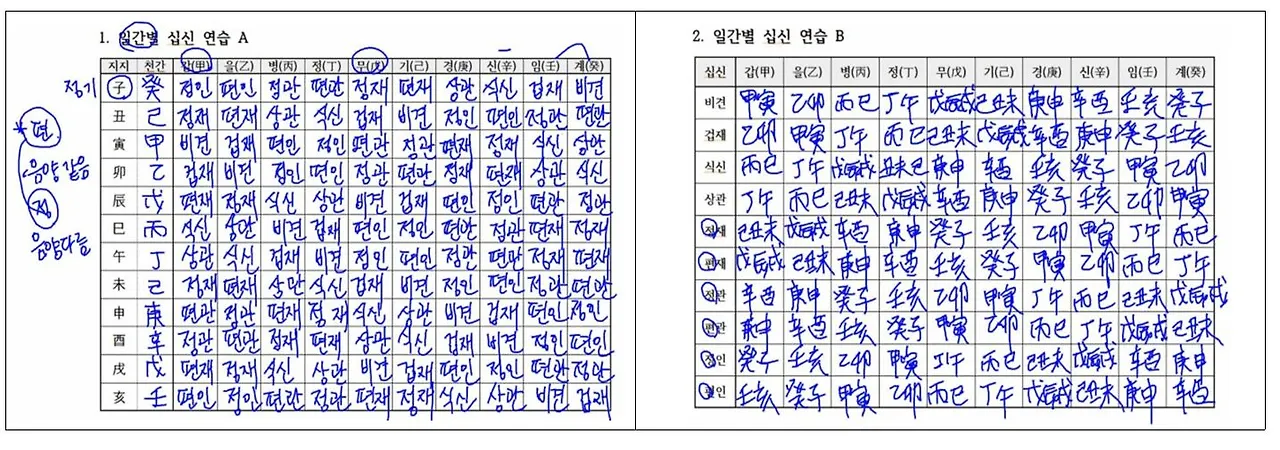 1. 일간별 십신 연습 A
지지 천간 갑(甲) 을(乙) 병(丙) 정(丁) 무(戊) 기(己) 경(庚) 신(辛) 임(壬) 계(癸)
정기 子 癸 정인 편인 정관 편관 정재 편재 상관 식신 겁재 비견
丑 己 정재 편재 상관 식신 겁재 비견 정인 편인 정관 편관
寅 甲 비견 겁재 편인 정인 편관 정관 편재 정재 식신 상관
卯 乙 겁재 비견 정인 편인 정관 편관 정재 편재 상관 식신
辰 戊 편재 정재 식신 상관 비견 겁재 편인 정인 편관 정관
巳 丙 식신 상관 비견 겁재 편인 정인 편관 정관 편재 정재
午 丁 상관 식신 겁재 비견 정인 편인 정관 편관 정재 편재
未 己 정재 편재 상관 식신 겁재 비견 정인 편인 정관 편관
申 庚 편관 정관 편재 정재 식신 상관 비견 겁재 편인 정인
酉 辛 정관 편관 정재 편재 상관 식신 겁재 비견 정인 편인
戌 戊 편재 정재 식신 상관 비견 겁재 편인 정인 편관 정관
亥 壬 편인 정인 편관 정관 편재 정재 식신 상관 비견 겁재
* 편
음양 같음
정
음양다름
2. 일간별 십신 연습 B
십신 갑(甲) 을(乙) 병(丙) 정(丁) 무(戊) 기(己) 경(庚) 신(辛) 임(壬) 계(癸)
비견 甲寅 乙卯 丙巳 丁午 戊辰戌 己丑未 庚申 辛酉 壬亥 癸子
겁재 乙卯 甲寅 丁午 丙巳 己丑未 戊辰戌 辛酉 庚申 癸子 壬亥
식신 丙巳 丁午 戊辰戌 己丑未 庚申 辛酉 壬亥 癸子 甲寅 乙卯
상관 丁午 丙巳 己丑未 戊辰戌 辛酉 庚申 癸子 壬亥 乙卯 甲寅
정재 己丑未 戊辰戌 辛酉 庚申 癸子 壬亥 乙卯 甲寅 丁午 丙巳
편재 戊辰戌 己丑未 庚申 辛酉 壬亥 癸子 甲寅 乙卯 丙巳 丁午
정관 辛酉 庚申 癸子 壬亥 乙卯 甲寅 丁午 丙巳 己丑未 戊辰戌
편관 庚申 辛酉 壬亥 癸子 甲寅 乙卯 丙巳 丁午 戊辰戌 己丑未
정인 癸子 壬亥 乙卯 甲寅 丁午 丙巳 己丑未 戊辰戌 辛酉 庚申
편인 壬亥 癸子 甲寅 乙卯 丙巳 丁午 戊辰戌 己丑未 庚申 辛酉